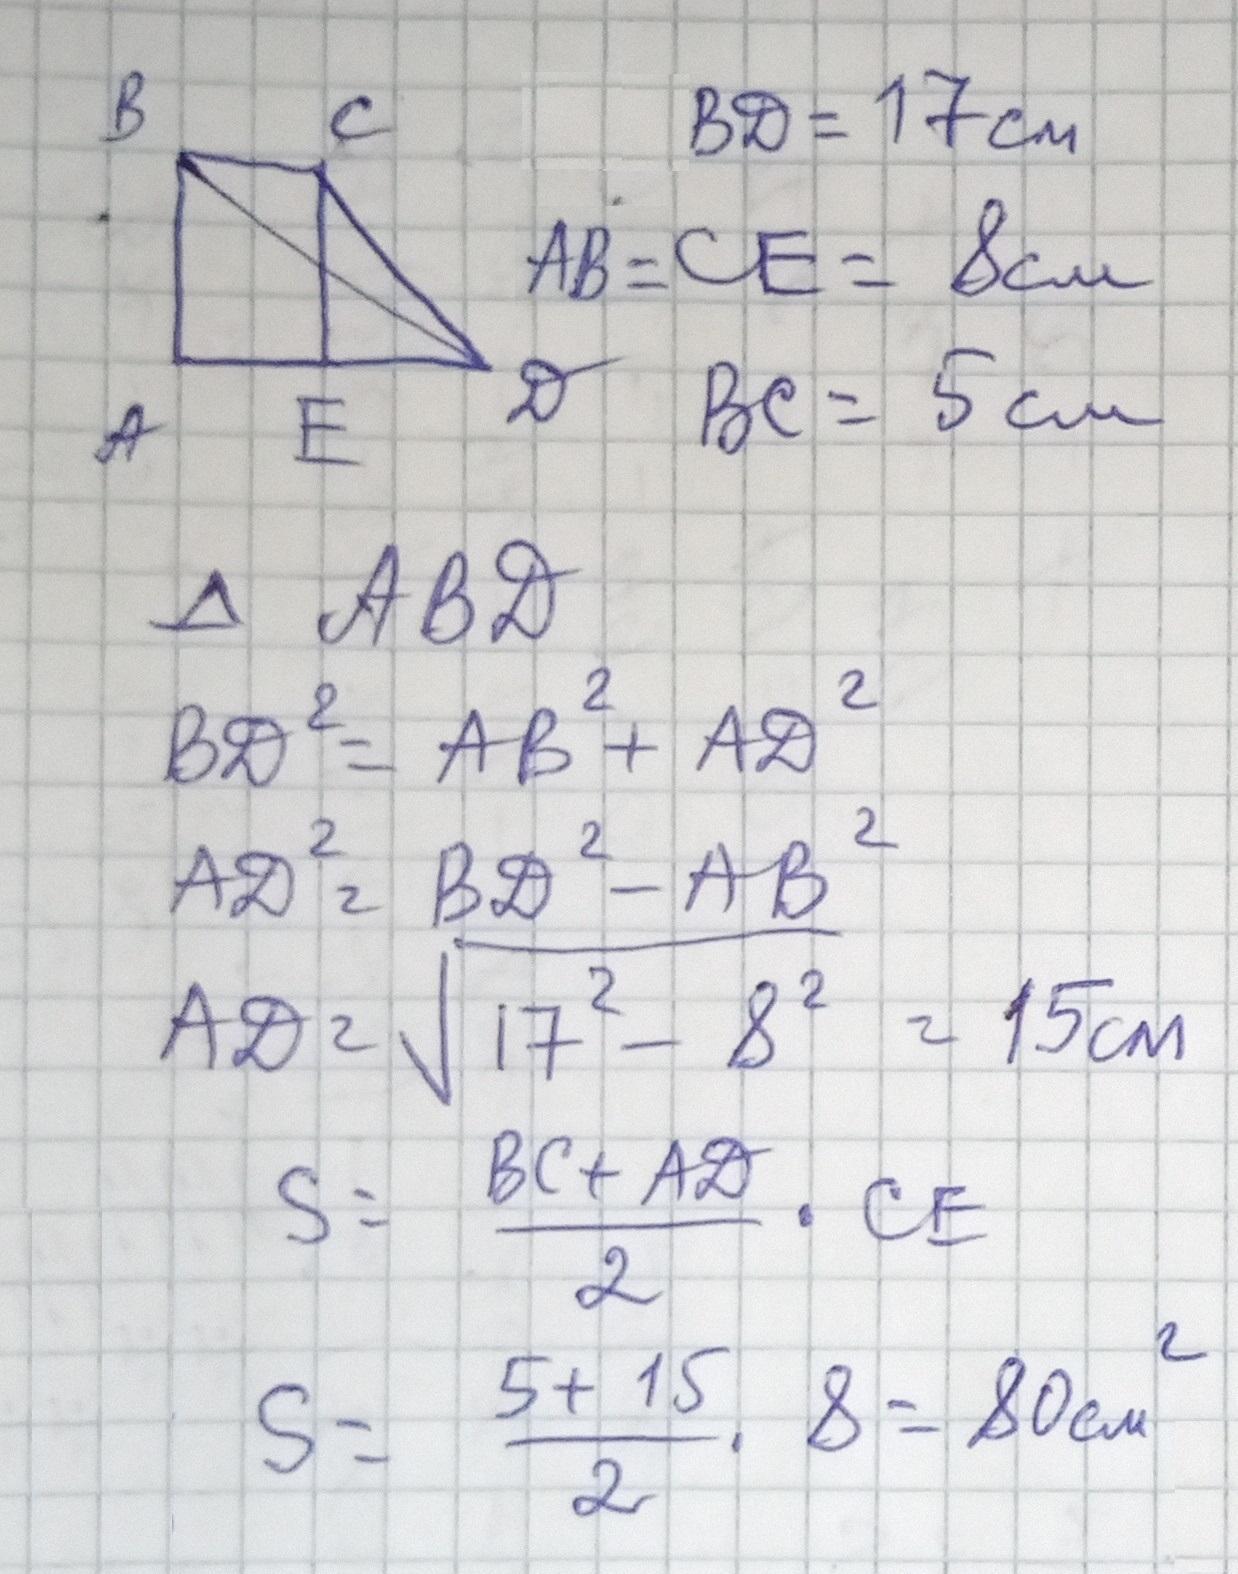 B C
BD = 17 см
AB = CE = 8 см
A E D
BC = 5 см
Δ ABD
BD² = AB² + AD²
AD² = BD² - AB²
AD = √17² - 8² = 15 см
S = (BC + AD)/2 · CE
S = (5 + 15)/2 · 8 = 80 см²